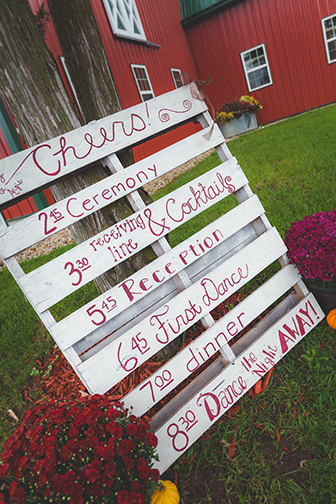 Cheers!
2:45 Ceremony
3:30 receiving line & Cocktails
5:45 Reception
6:45 First Dance
7:00 dinner
8:30 Dance the Night AWAY!